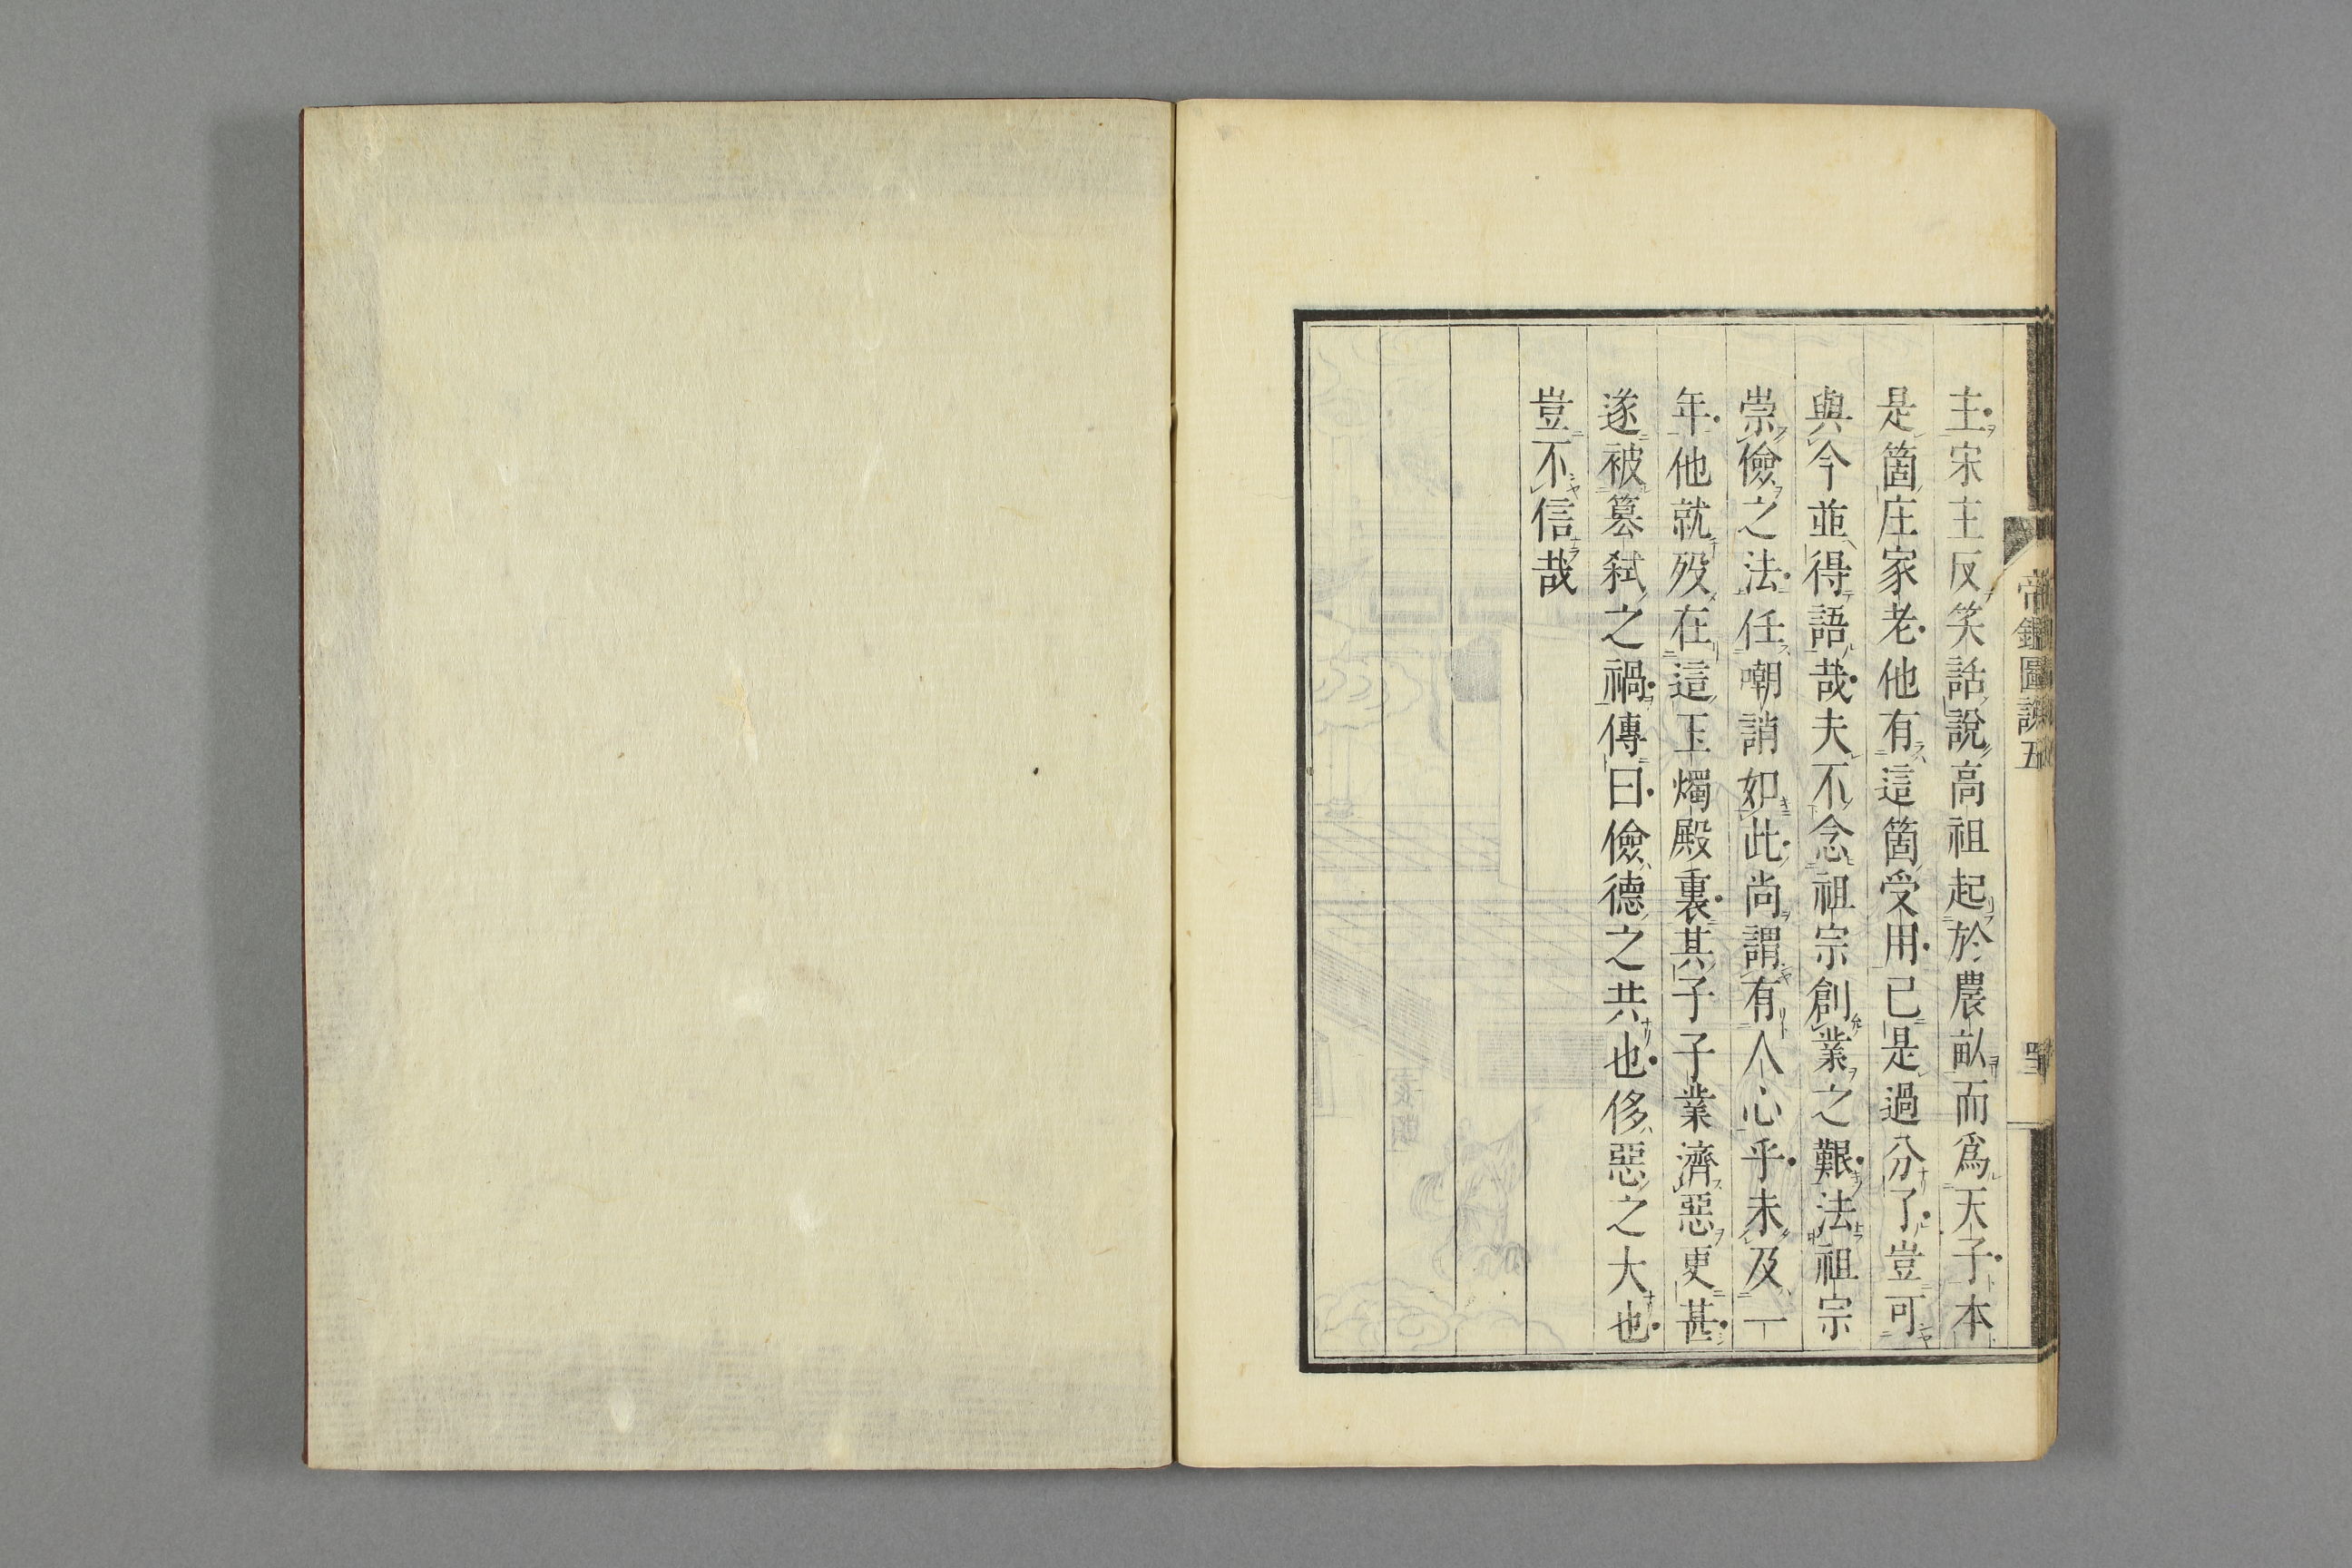 帝鑑圖說五
主宋主反笑話說高祖起於農畝而爲天子本
是箇庄家老他有這箇受用已是過分了豈可
與今並得語哉夫不念祖宗創業之艱法祖宗
崇儉之法任嘲誚如此尚謂有人心乎未及一
年他就歿在這玉燭殿裏其子子業濟惡更甚
遂被簒弑之禍傳曰儉德之共也侈惡之大也
豈不信哉